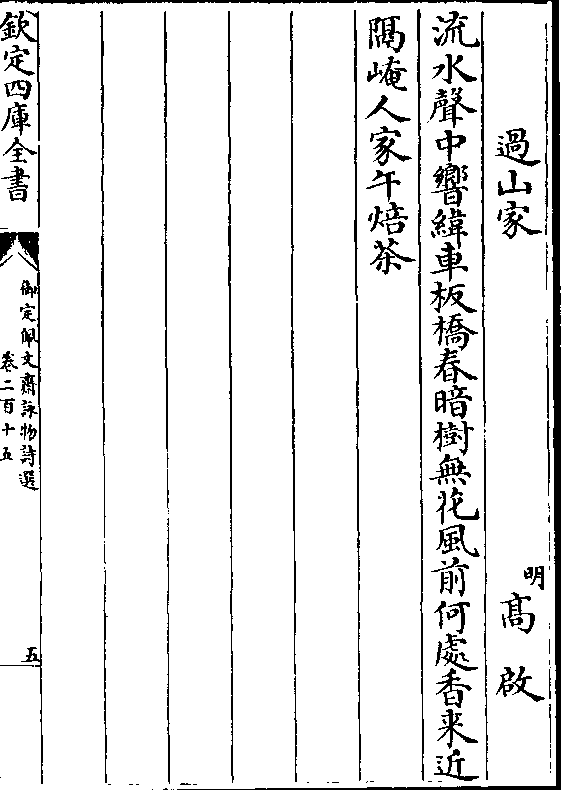 過山家
明 髙啟
流水聲中響緯車板橋春暗樹無花風前何處香来近
隔崦人家午焙茶
欽定四庫全書
御定佩文齋詠物詩選
卷二百十五
五